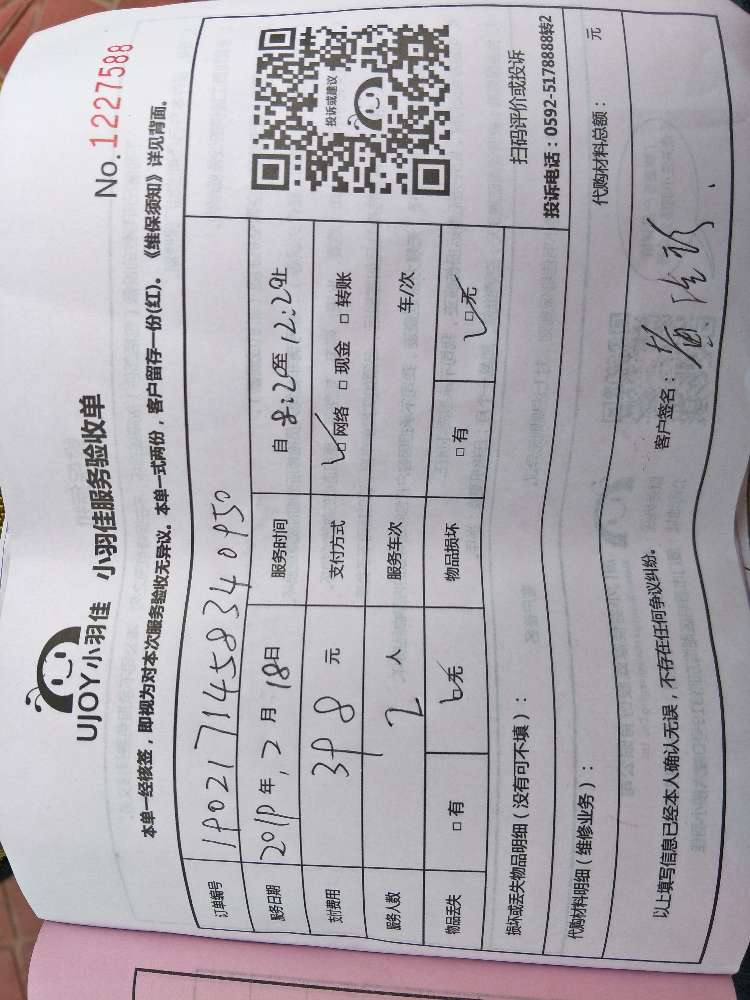 UJOY小羽佳 小羽佳服务验收单
No.1227588
本单一经核签，即视为对本次服务验收无异议。本单一式两份，客户留存一份(红)。《维保须知》详见背面。
订单编号 190217145834 0950
服务日期 2019年2月18日 服务时间 自8:20至12:20止
支付费用 398元 支付方式 □网络 □现金 □转账
服务人数 2人 服务车次 车/次
物品丢失 □有 □无 物品损坏 □有 □无
投诉或建议
扫码评价或投诉
投诉电话：0592-5178888转2
损坏或丢失物品明细（没有可不填）：
代购材料明细（维修业务）： 代购材料总额： 元
以上填写信息已经本人确认无误，不存在任何争议纠纷。 客户签名：